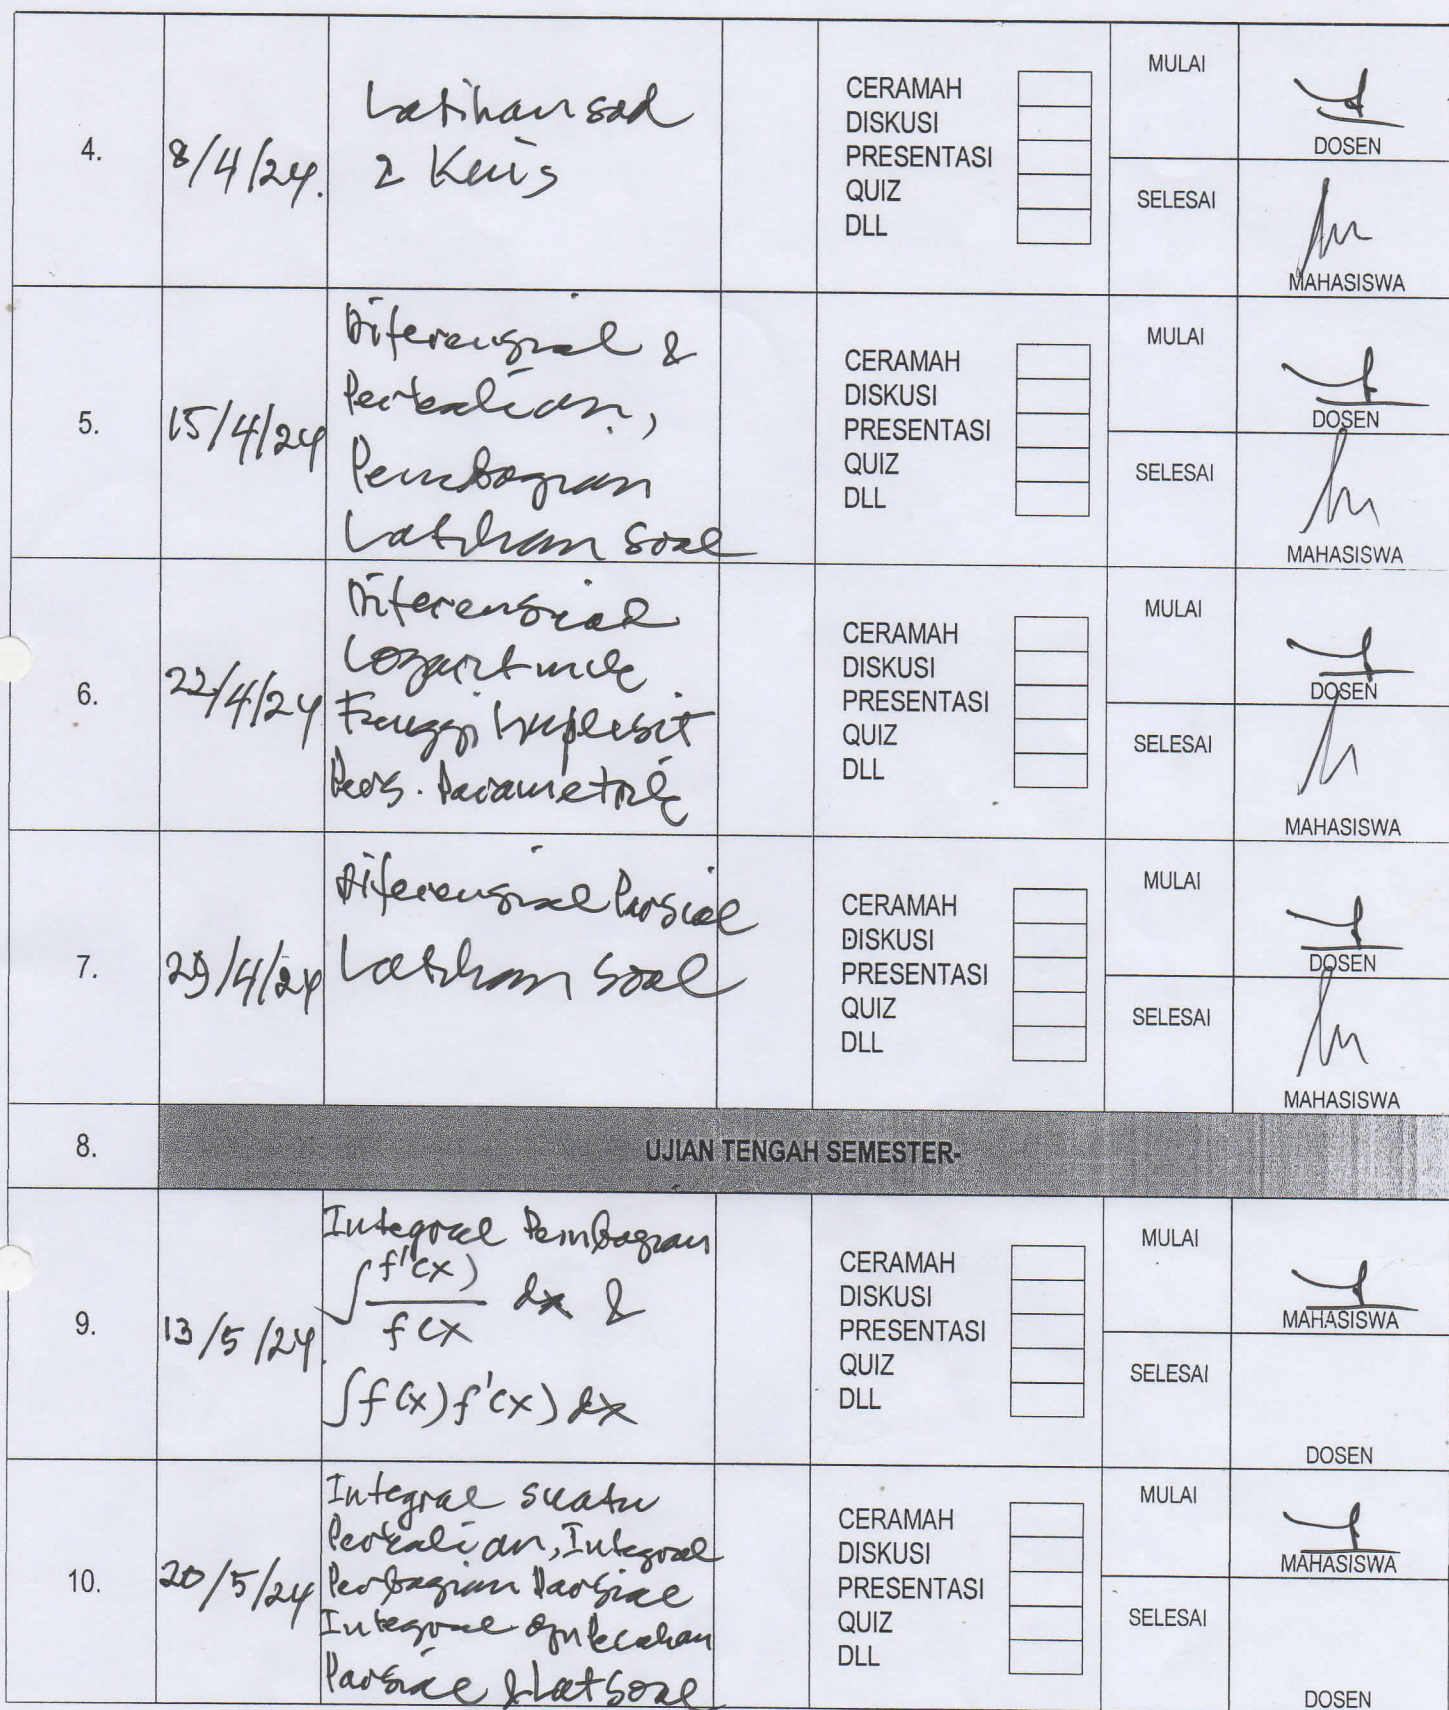 4.
8/4/24.
Latihan soal
2 Kuis
CERAMAH
DISKUSI
PRESENTASI
QUIZ
DLL
MULAI
DOSEN
SELESAI
MAHASISWA
5.
15/4/24
Diferensial &
Perkalian,
Pembagian
Latihan soal
CERAMAH
DISKUSI
PRESENTASI
QUIZ
DLL
MULAI
DOSEN
SELESAI
MAHASISWA
6.
22/4/24
Diferensial
Logaritmik
Fungsi Implisit
Pers. Parametrik
CERAMAH
DISKUSI
PRESENTASI
QUIZ
DLL
MULAI
DOSEN
SELESAI
MAHASISWA
7.
29/4/24
Diferensial Parsial
Latihan soal
CERAMAH
DISKUSI
PRESENTASI
QUIZ
DLL
MULAI
DOSEN
SELESAI
MAHASISWA
8.
UJIAN TENGAH SEMESTER-
9.
13/5/24
Integral Pembagian
∫ f'(x)
/ f(x dx &
∫f(x)f'(x) dx
CERAMAH
DISKUSI
PRESENTASI
QUIZ
DLL
MULAI
MAHASISWA
SELESAI
DOSEN
10.
20/5/24
Integral suatu
Perkalian, Integral
Perbagian Parsial
Integral
Parsial & Lat soal
CERAMAH
DISKUSI
PRESENTASI
QUIZ
DLL
MULAI
MAHASISWA
SELESAI
DOSEN